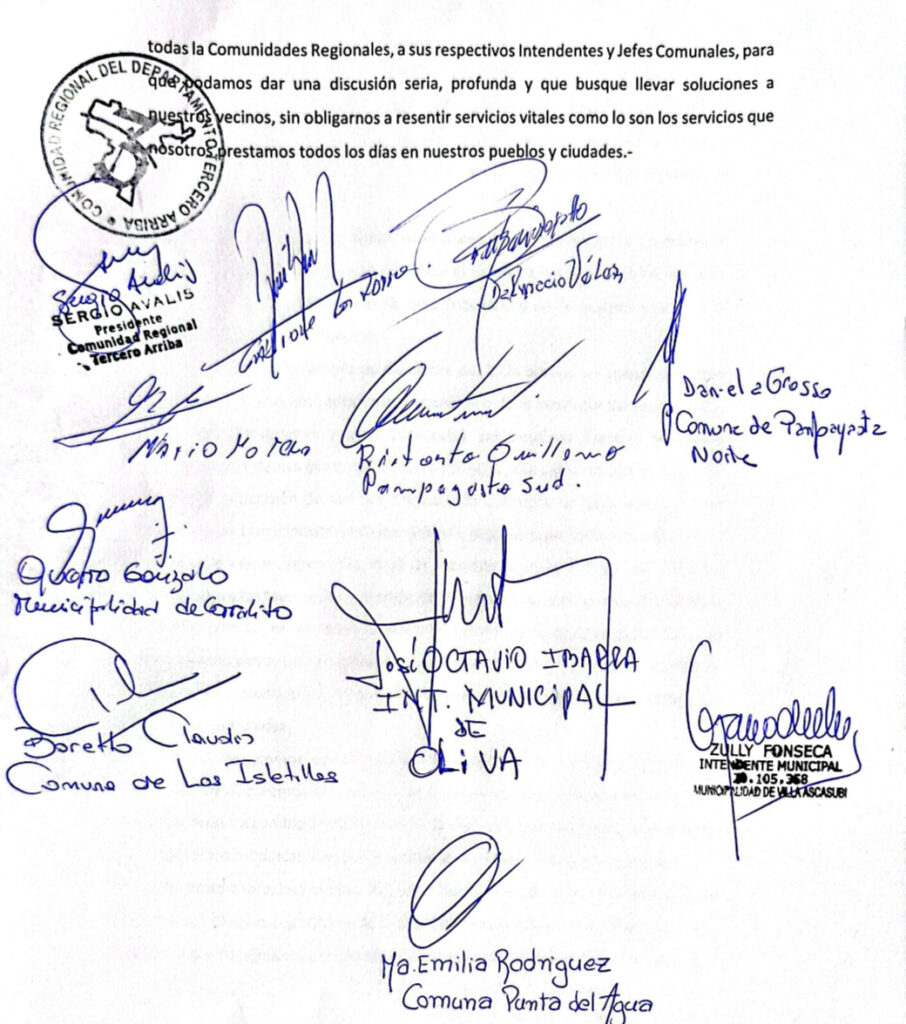 todas la Comunidades Regionales, a sus respectivos Intendentes y Jefes Comunales, para
que podamos dar una discusión seria, profunda y que busque llevar soluciones a
nuestros vecinos, sin obligarnos a resentir servicios vitales como lo son los servicios que
nosotros prestamos todos los días en nuestros pueblos y ciudades.-
COMUNIDAD REGIONAL DEL DEPARTAMENTO TERCERO ARRIBA
Sergio Avalis
SERGIO AVALIS
Presidente
Comunidad Regional
Tercero Arriba
Dalmacio Vélez
Daniela Grosso
Comuna de Pampayasta
Norte
Mario
Ristorto Guillermo
Pampayasta Sud.
Gonzalo
Municipalidad de Corralito
José OCTAVIO IBARRA
INT. MUNICIPAL
DE
OLIVA
Boretto Claudio
Comuna de Las Isletillas
ZULLY FONSECA
INTENDENTE MUNICIPAL
.105.368
MUNICIPALIDAD DE VILLA ASCASUBI
Ma. Emilia Rodriguez
Comuna Punta del Agua